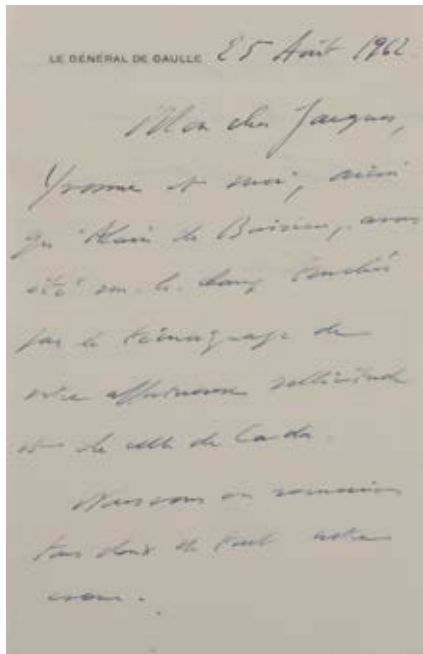 LE GÉNÉRAL DE GAULLE 25 Août 1962
Mon cher Jacques,
Yvonne et moi, ainsi
qu'Alain de Boissieu, avons
été sur-le-champ touchés
par le témoignage de
votre affectueuse sollicitude
et de celle de Cada.
Nous vous en remercions
tous deux de tout notre
coeur.